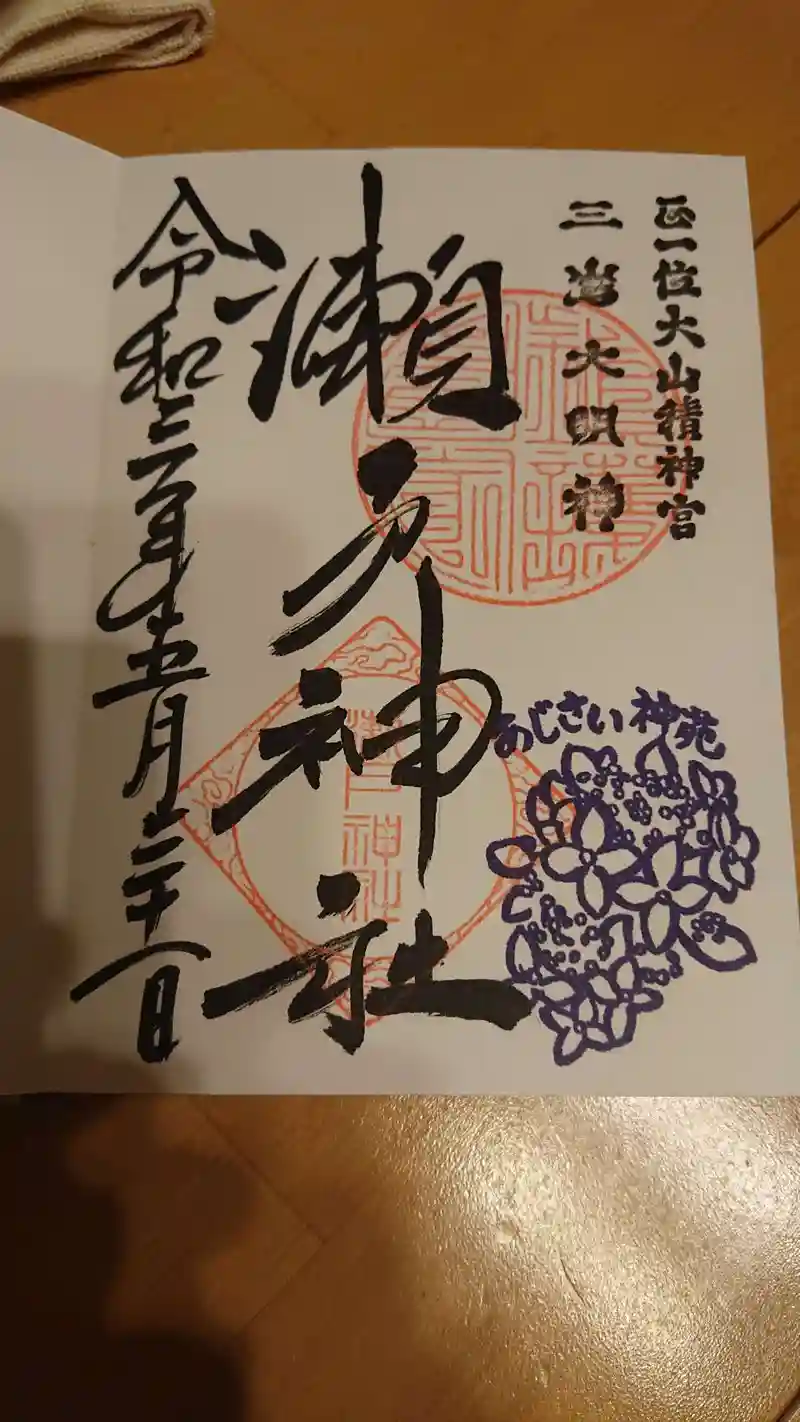 正一位大山積神宮
三島大明神
瀬戸神社
令和三年五月二十一日
あじさい神苑
瀬戸神社